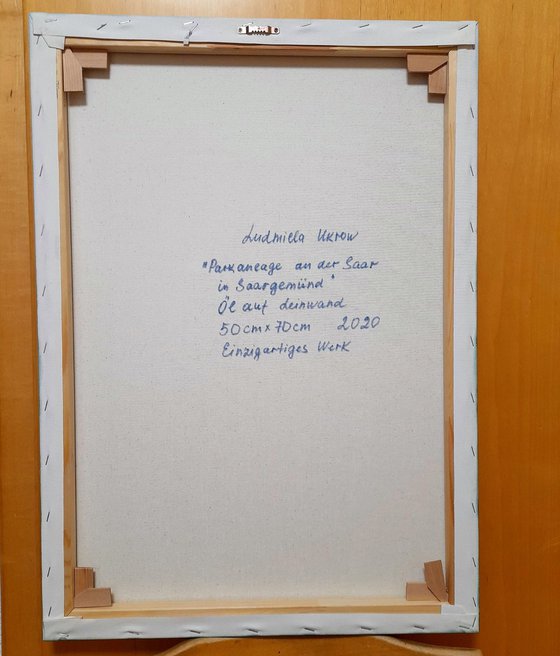 Ludmiela Ukrow
"Parkanlage an der Saar
in Saargemünd"
Öl auf Leinwand
50cm x 70cm 2020
Einzigartiges Werk